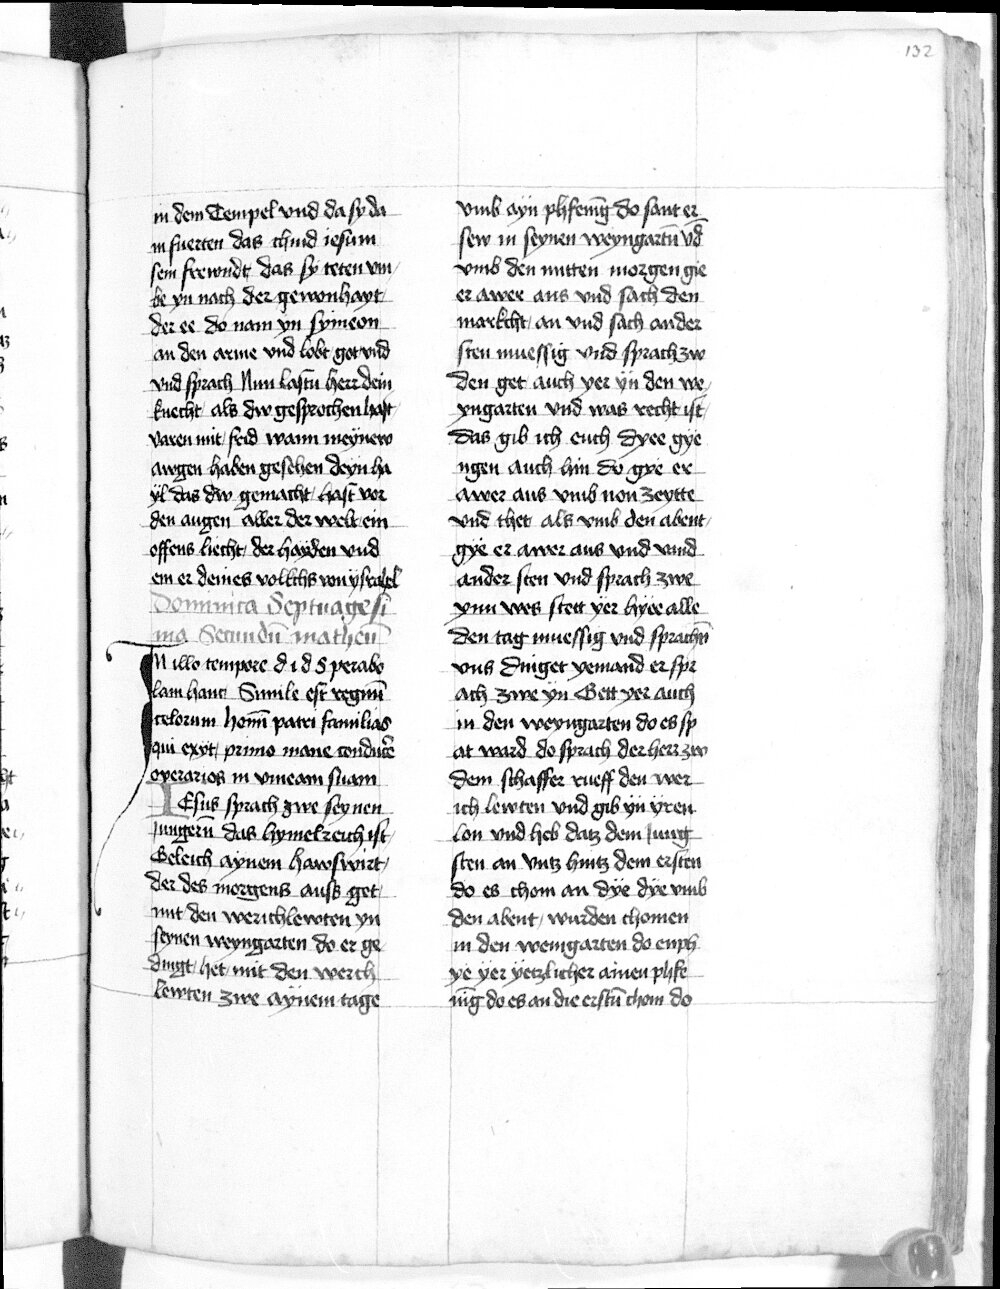 132
in dem Tempel vnd da sy da
in fuerten das chind iesum
sein frewndt das sy teten vm
be yn nach der gewonhayt
der ee do nam yn symeon
an den arme vnd lobt got vnd
vnd sprach Nun lastu herr dein
knecht als dw gesprochen hast
varen mit frid wann meynew
awgen haben gesehen deyn ha
yl das dw gemacht hast vor
den augen aller der welt ein
offens liecht der hayden vnd
ein er deines vollchs von ysrahel
Dominica Septuagesi
ma Secundū matheū
IN illo tempore d i d s parabo
lam hanc Simile est regnū
celorum homī patri familias
qui exyt primo mane conducere
operarios in vineam suam
IEsus sprach zwe seynen
Jungerñ das hymelreich ist
Geleich aynem hawswirt
der des morgens auss get
mit den werichlewten yn
seynen weyngarten do er ge
dingt het mit den werch
lewten zwe aynem tage
vmb ayn phfenīg do sant er
sew in seynen weyngartū vd̄
vmb den mitten morgen gie
er awer aus vnd sach den
marckcht an vnd sach ander
sten muessig vnd sprach zw
den get auch yer yn den we
yngarten vnd was recht ist
das gib ich euch dyee gye
ngen auch hin do gye er
awer aus vmb non zeytte
vnd thet als vmb den abent
gye er awer aus vnd vand
ander sten vnd sprach zwe
ynn wes stett yer hyee alle
den tag muessig vnd sprachn̄
vns dinget yemand er spr
ach zwe yn Gett yer auch
in den weyngarten do es sp
at ward do sprach der herr zw
dem schaffer rueff den wer
ich lewten vnd gib yn yren
lon vnd heb datz dem Jung
sten an vntz hintz dem ersten
do es chom an dye dye vmb
den abent wurden chomen
in den weingarten do enph
ye yer yetzlicher ainen phfe
nīg do es an die erstū chom do